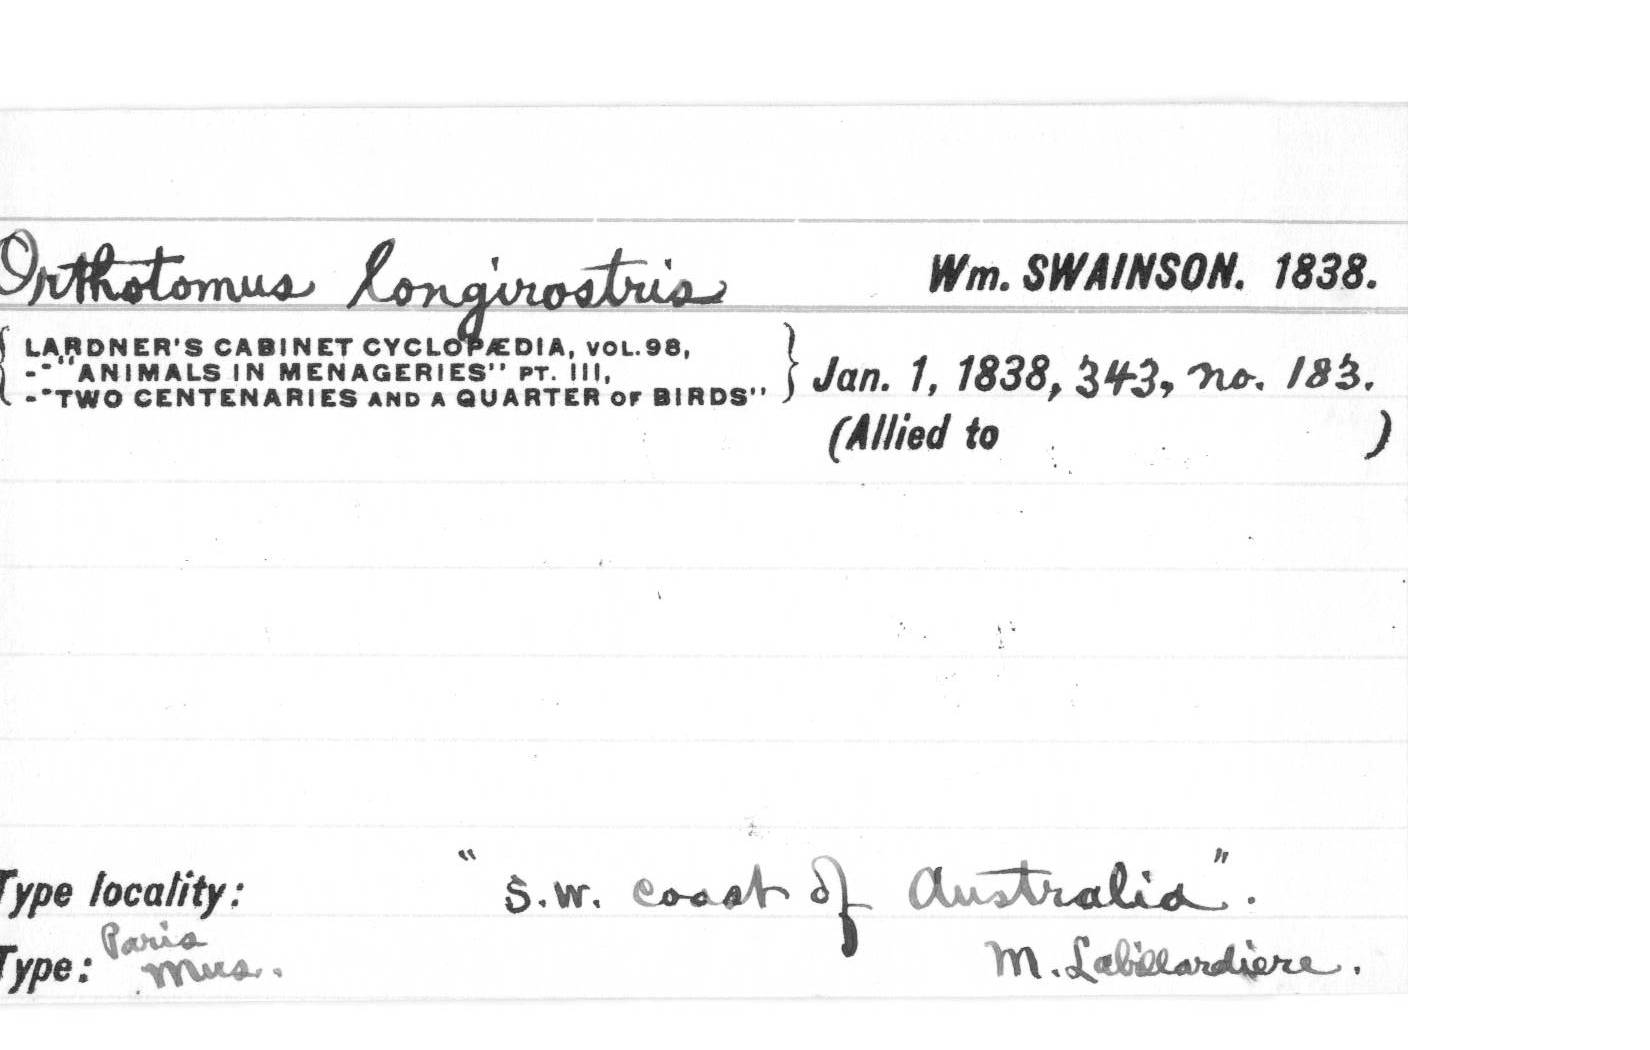 Orthotomus longirostris Wm. SWAINSON. 1838.
{ LARDNER'S CABINET CYCLOPÆDIA, VOL.98,
-"ANIMALS IN MENAGERIES" PT. III, } Jan. 1, 1838, 343, no. 183.
-"TWO CENTENARIES AND A QUARTER OF BIRDS"
(Allied to )
Type locality: "S.W. coast of Australia".
Type: Paris Mus. M. Labillardiere.